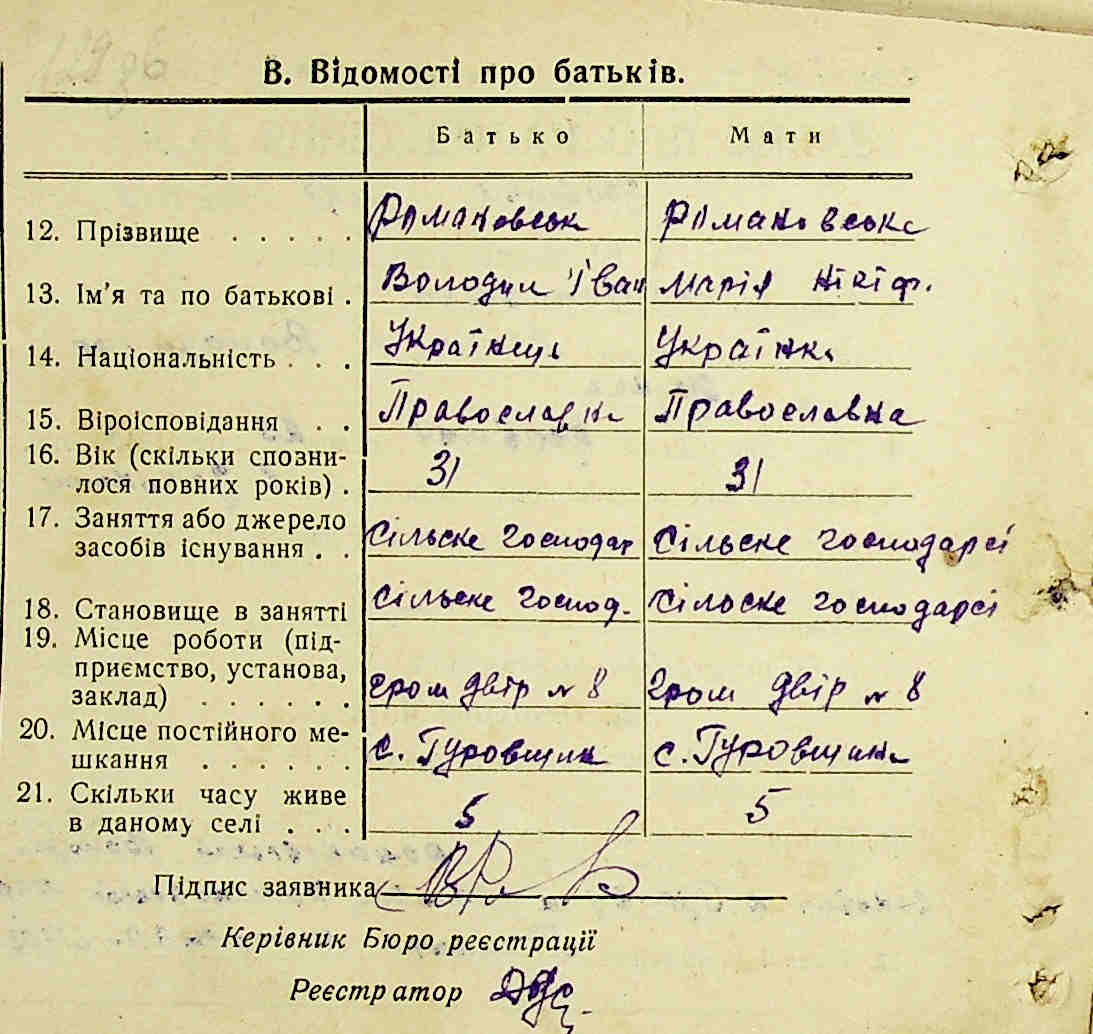 В. Відомості про батьків.
Батько Мати
12. Прізвище . . . . . Романовськ Романовська
13. Ім'я та по батькові . Володим Іван Марія Нікіф.
14. Національність . . . Українець Українка
15. Віроісповідання . . Православн Православна
16. Вік (скільки спозни-
лося повних років) . 31 31
17. Заняття або джерело
засобів існування . . Сільске господар Сільске господарсі
18. Становище в занятті Сільске господ. Сільске господарсі
19. Місце роботи (під-
приємство, установа,
заклад) . . . . . . гром двір № 8 гром двір № 8
20. Місце постійного ме-
шкання . . . . . . с. Гуровщин с. Гуровщина
21. Скільки часу живе
в даному селі . . . 5 5
Підпис заявника
Керівник Бюро реєстрації
Реєстратор